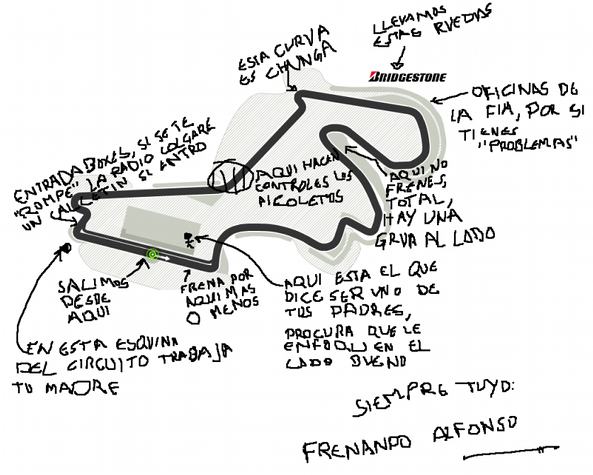 LLEVAMOS
ESTAS RUEDAS
BRIDGESTONE
ESTA CURVA
ES CHUNGA
OFICINAS DE
LA FIA, POR SI
TIENES
"PROBLEMAS"
ENTRADA BOXES, SI SE TE
"ROMPE" LA RADIO COLGARE
UN CALCETIN SI ENTRO
AQUI HACEN
CONTROLES LOS
PICOLETOS
AQUI NO
FRENES
TOTAL,
HAY UNA
GRUA AL LADO
SALIMOS
DESDE
AQUI
FRENA POR
AQUI MAS
O MENOS
AQUI ESTA EL QUE
DICE SER UNO DE
TUS PADRES,
PROCURA QUE LE
ENFOQUEN EN EL
LADO BUENO
EN ESTA ESQUINA
DEL CIRCUITO TRABAJA
TU MADRE
SIEMPRE TUYO:
FRENANDO ALFONSO